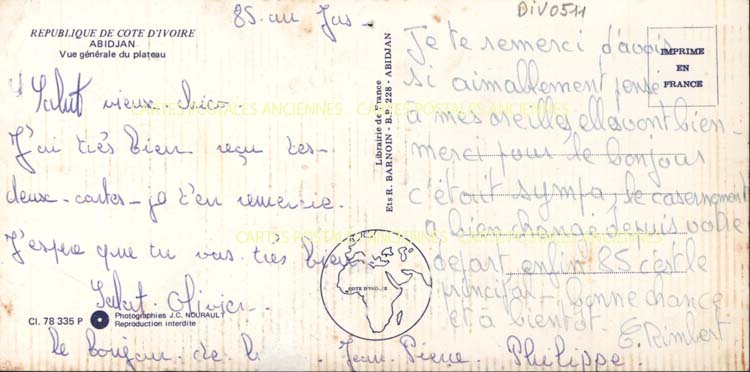 85. au Jus -
BIV0511
REPUBLIQUE DE COTE D'IVOIRE
ABIDJAN
Vue générale du plateau
Salut vieux chico
J'ai très bien reçu tes
deux-cartes - je t'en remercie.
J'espère que tu vas très bien
Salut. Olivier.
Cl. 78 335 P
Photographies J.C. NOURAULT
Reproduction interdite
le bonjour de Jean-Pierre Philippe.
Librairie de France
Ets R. BARNOIN - B.P. 228 - ABIDJAN
COTE D'IVOIRE
IMPRIME
EN
FRANCE
Je te remerci d'avois
si aimallement pensé
à mes oreilles, elles vont bien -
merci pour le bonjour
c'était sympa, le casernement
a bien changé depuis votre
départ enfin 85 c'est le
principal - bonne chance
et à bientôt. E. Rimbert
CARTES POSTALES ANCIENNES
CARTES POSTALES ANCIENNES
CARTES POSTALES ANCIENNES
CARTES POSTALES ANCIENNES